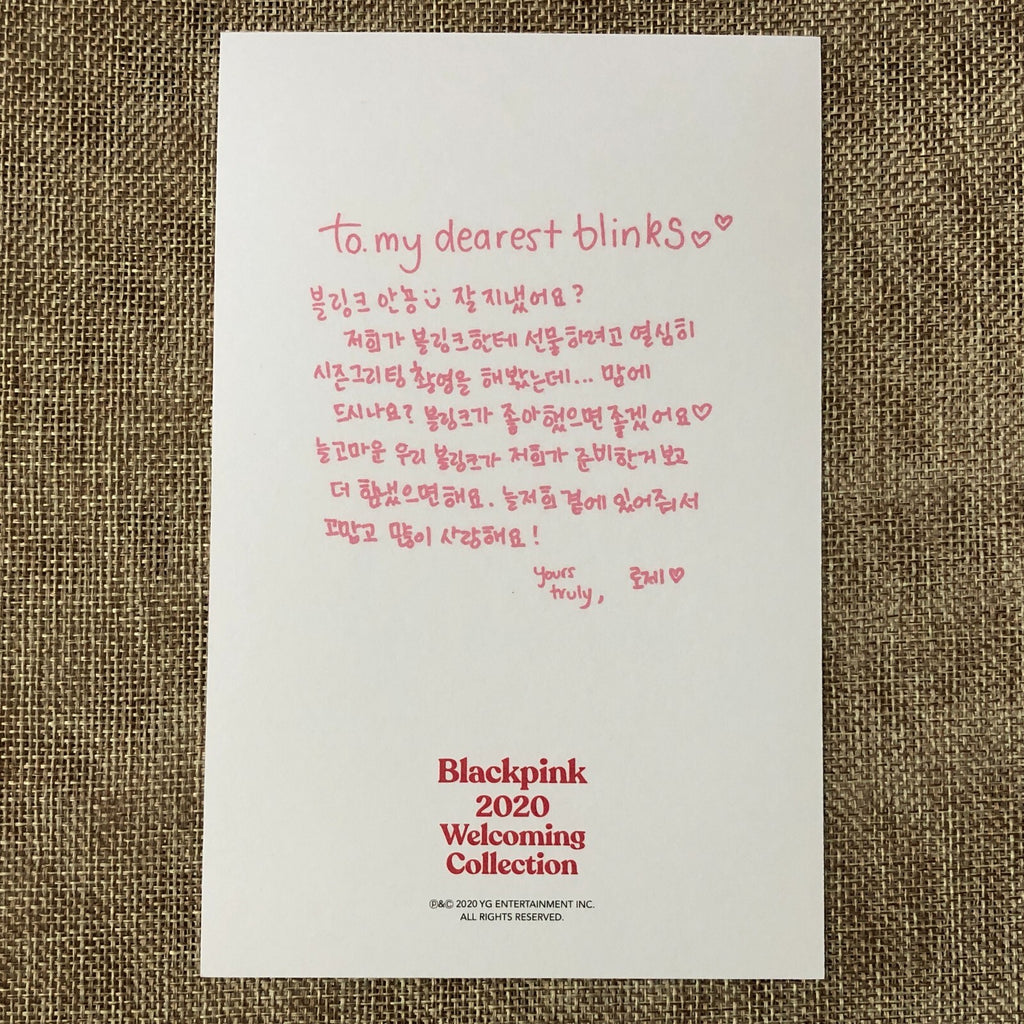 to. my dearest blinks♡♡
블링크 안농 잘 지냈어요?
저희가 블링크한테 선물하려고 열심히
시즌그리팅 촬영을 해봤는데... 맘에
드시나요? 블링크가 좋아했으면 좋겠어요♡
늘고마운 우리 블링크가 저희가 준비한거 보고
더 힘냈으면해요. 늘저희 곁에 있어줘서
고맙고 많이 사랑해요!
yours
truly, 로제♡
Blackpink
2020
Welcoming
Collection
℗&© 2020 YG ENTERTAINMENT INC.
ALL RIGHTS RESERVED.